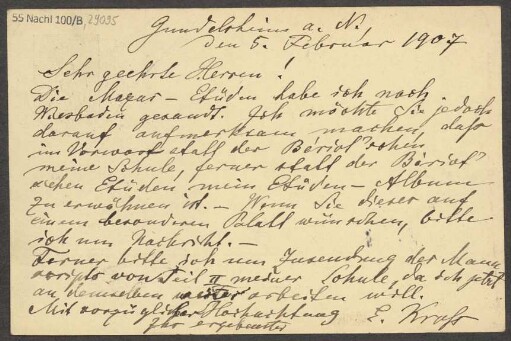 55 Nachl 100/B, 29095
Gundelsheim a. N.
den 5. Februar 1907
Sehr geehrte Herren!
Die Mazas-Etüden habe ich nach
Wiesbaden gesandt. Ich möchte Sie jedoch
darauf aufmerksam machen, daß
im Vorwort statt der Bériot'schen
meine Schule, ferner statt der Bériot'
schen Etüden mein Etüden-Album
zu erwähnen ist. – Wenn Sie dieses auf
einem besonderen Blatt wünschen, bitte
ich um Nachricht. –
Ferner bitte ich um Zusendung der Manu
scripts von Teil II meiner Schule, da ich jetzt
an demselben weiter arbeiten will.
Mit vorzüglicher Hochachtung
Ihr ergebenster E. Kross